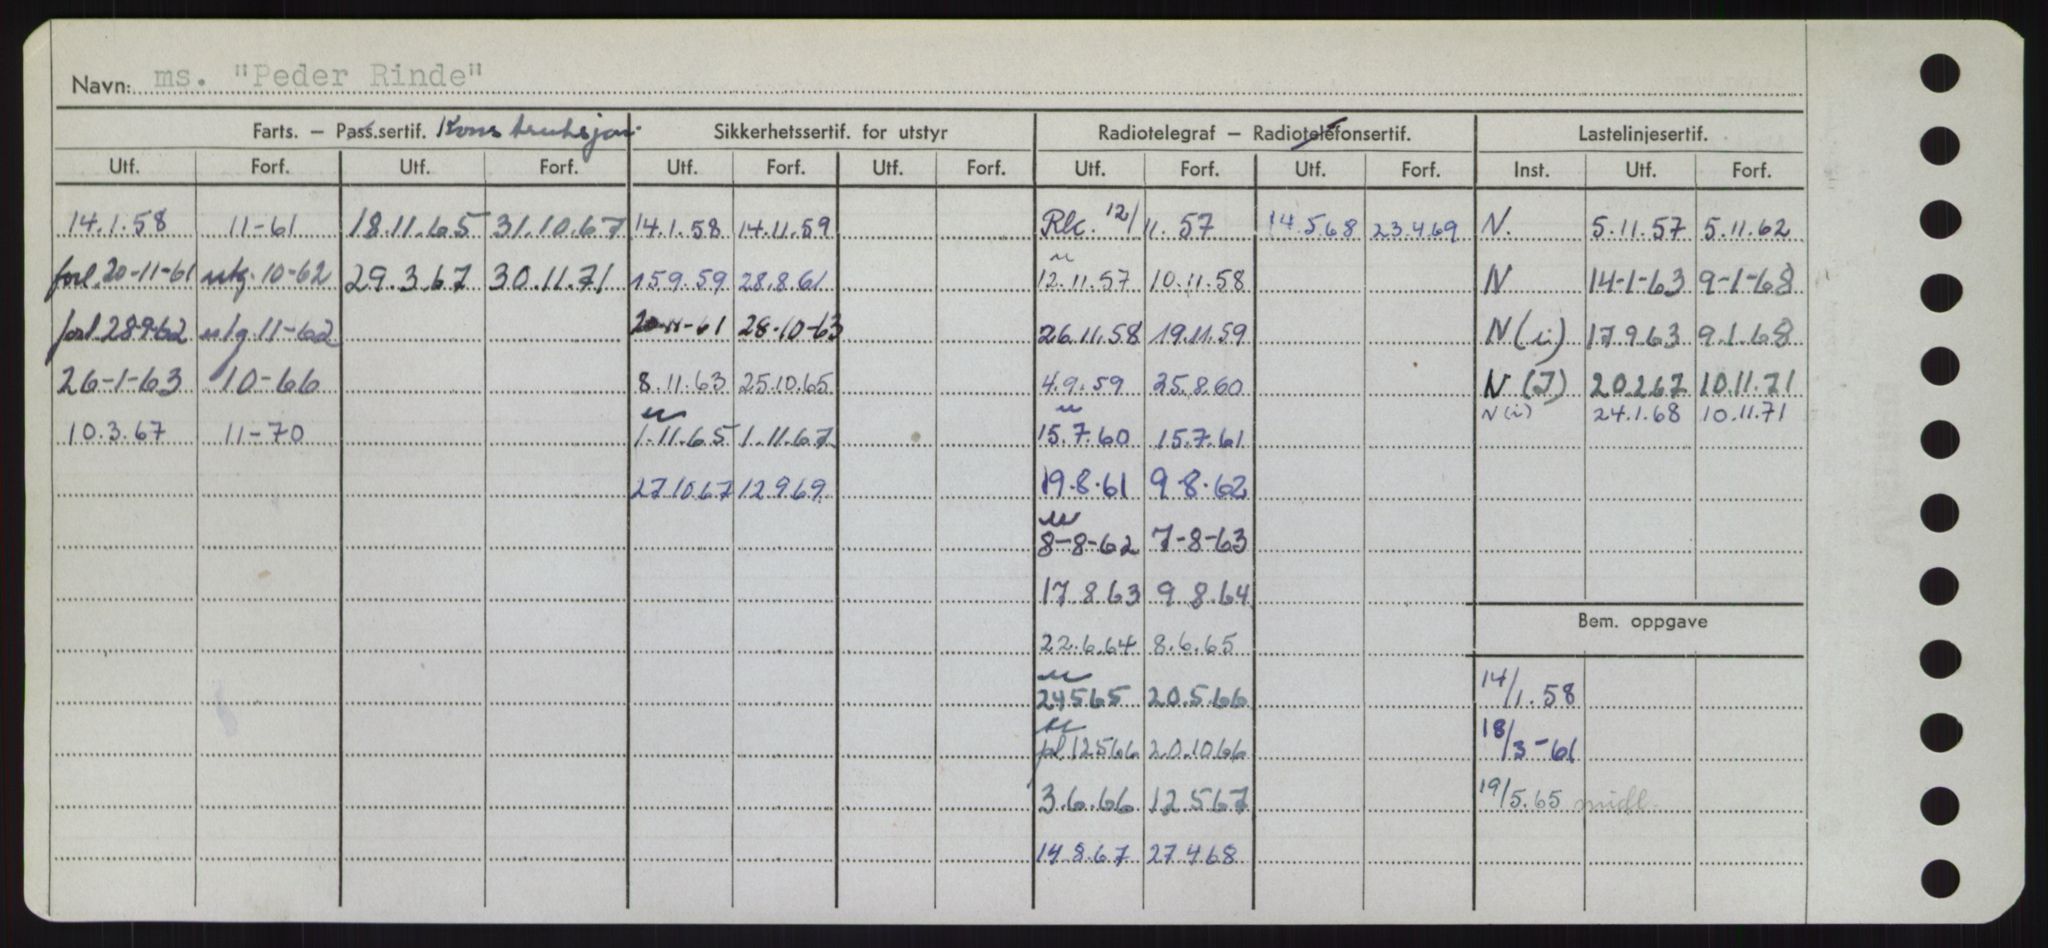 Navn: ms. "Peder Rinde"
Farts. – Pass.sertif. Konstruksjon. Sikkerhetssertif. for utstyr Radiotelegraf – Radiotelefonsertif. Lastelinjesertif.
Utf. Forf. Utf. Forf. Utf. Forf. Utf. Forf. Utf. Forf. Utf. Forf. Inst. Utf. Forf.
14.1.58 11-61 18.11.65 31.10.67 14.1.58 14.11.59 Rk. 12/11.57 14.5.68 23.4.69 N. 5.11.57 5.11.62
forl. 20-11-61 utg. 10-62 29.3.67 30.11.71 15.9.59 28.8.61 12.11.57 10.11.58 N 14-1-63 9-1-68
forl 28-9-62 utg. 11-62 20-11-61 28-10-63 26.11.58 19.11.59 N (i) 17.9.63 9.1.68
26-1-63 10-66 8.11.63 25.10.65 4.9.59 25.8.60 N (I) 20.2.67 10.11.71
N (i) 24.1.68 10.11.71
10.3.67 11-70 1.11.65 1.11.67 15.7.60 15.7.61
27.10.67 12.9.69 19.8.61 9.8.62
8-8-62 7-8-63
17.8.63 9.8.64
Bem. oppgave
22.6.64 8.6.65
24.5.65 20.5.66 14/1.58
12.5.66 20.10.66 18/3-61
3.6.66 12.5.67 19/5.65 midl.
14.8.67 27.4.68